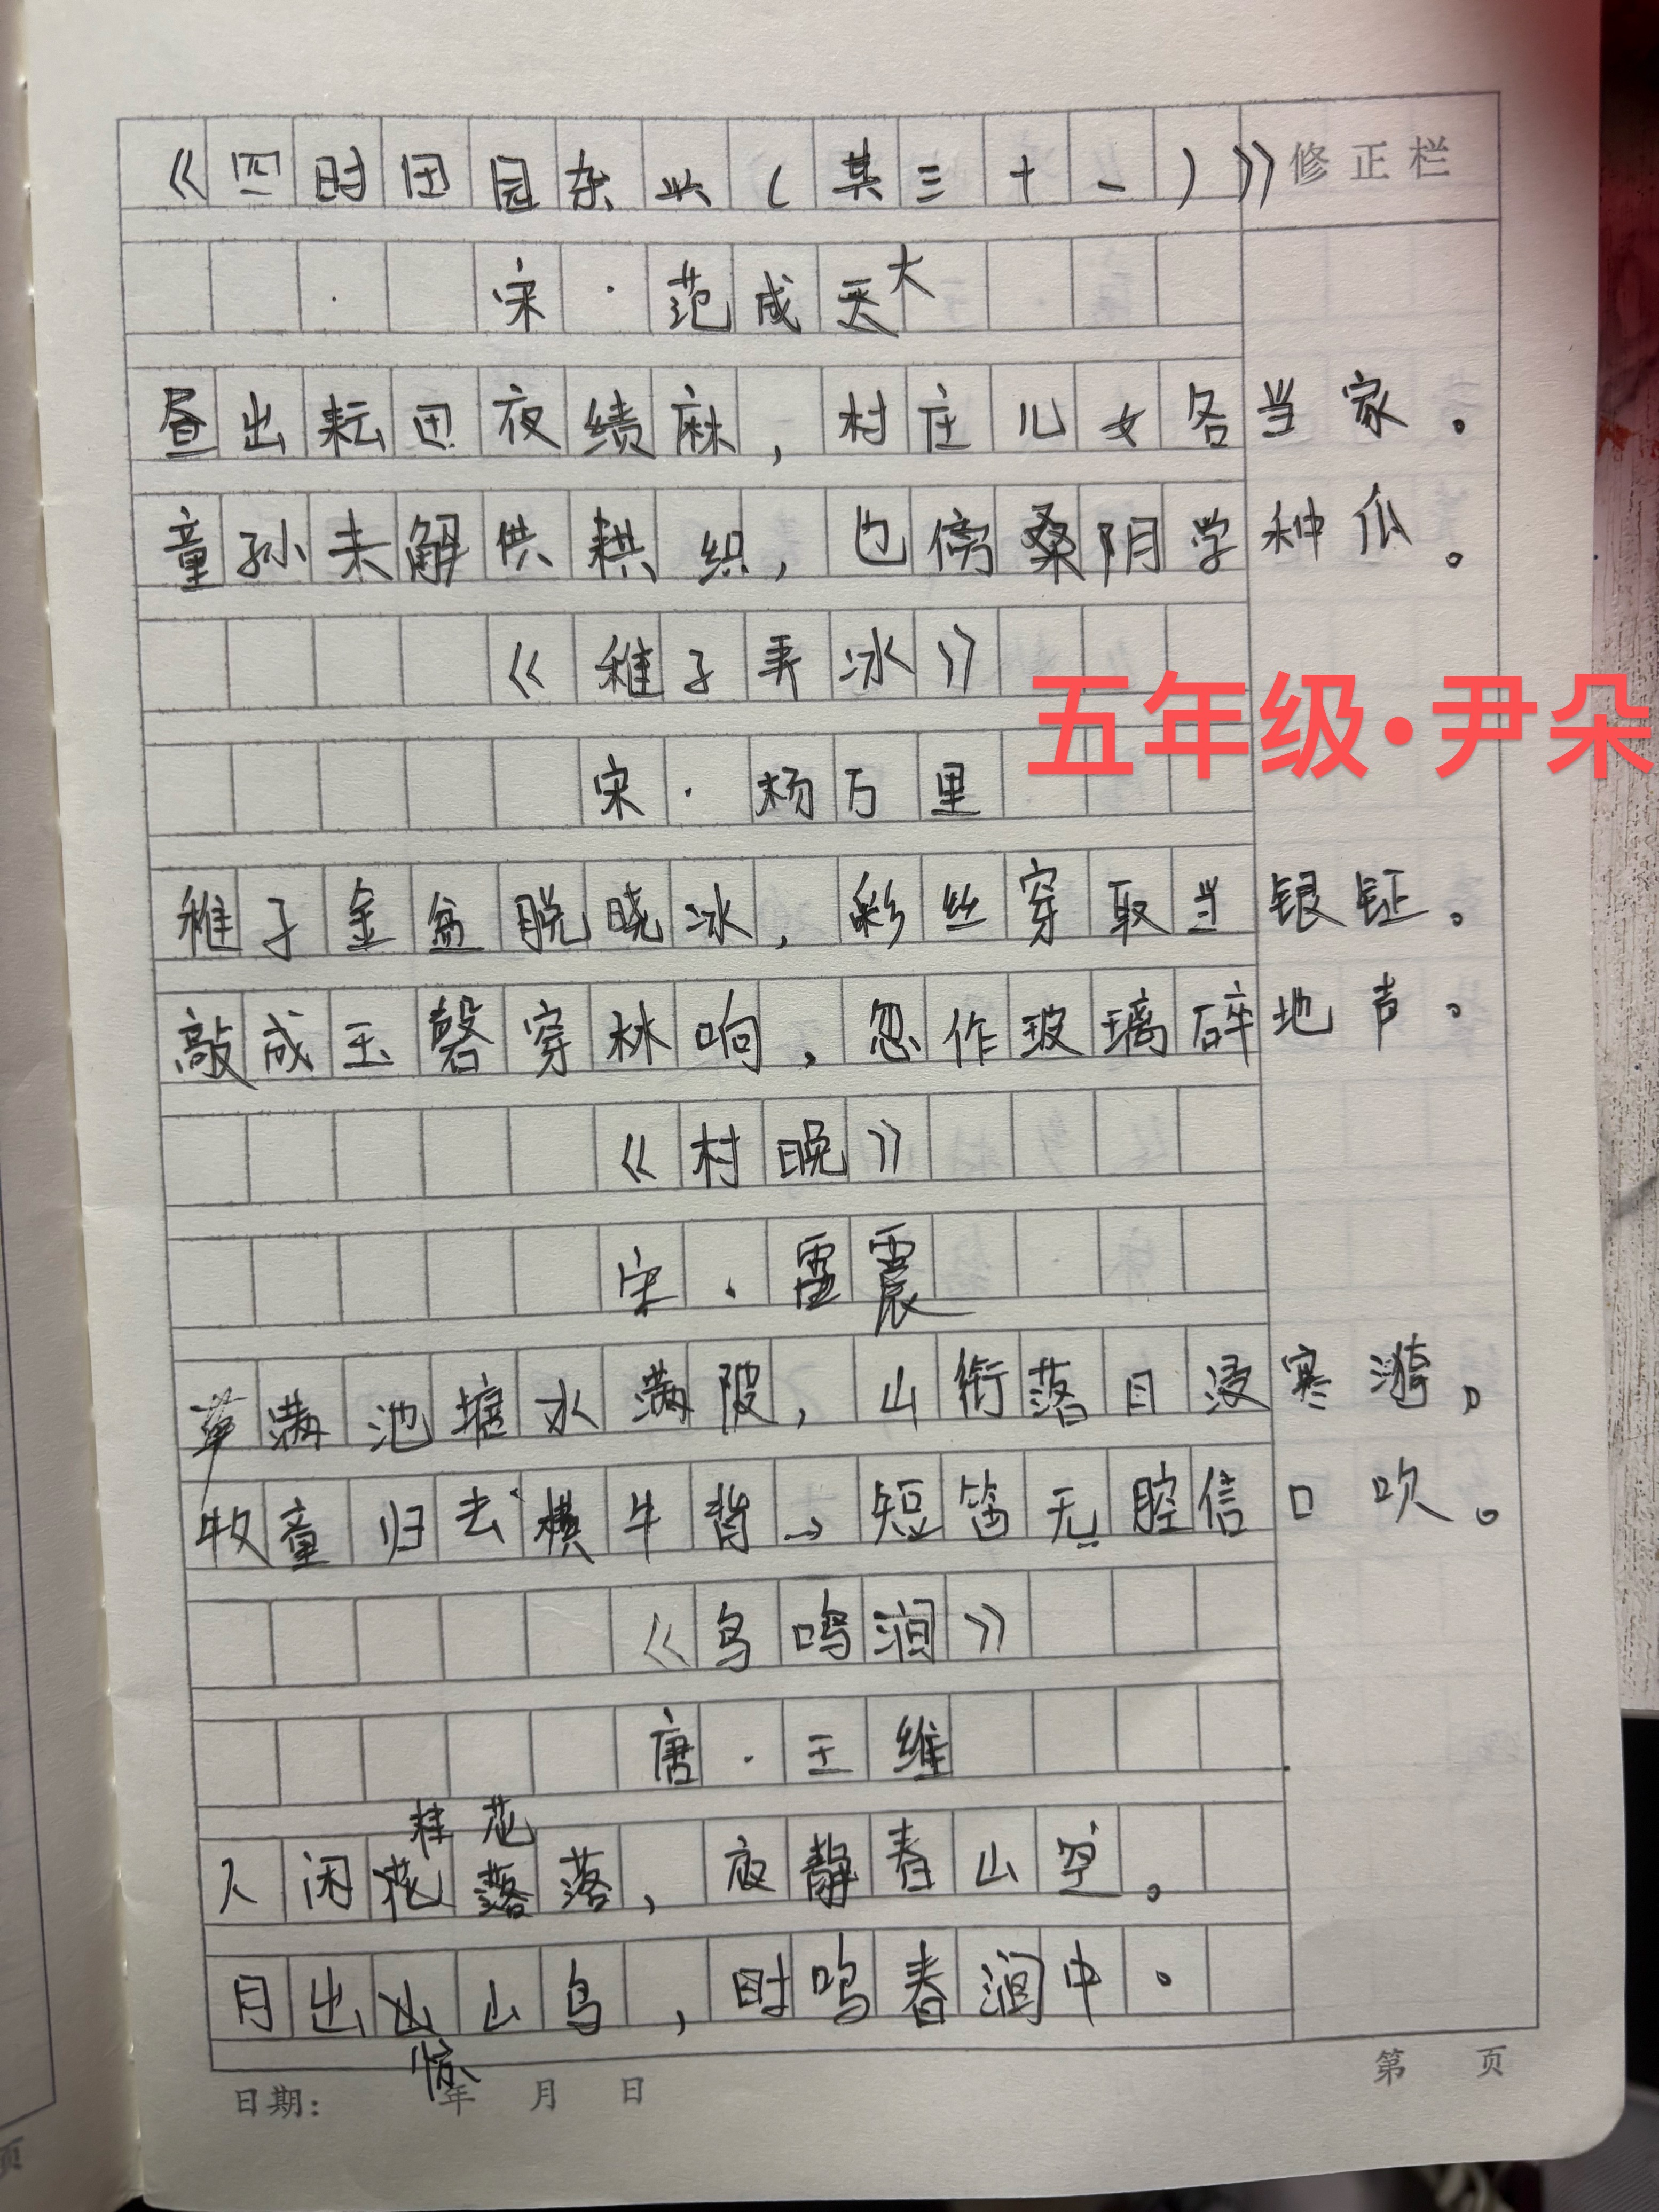 《四时田园杂兴(其三十一)》
修正栏
宋·范成大
昼出耘田夜绩麻,村庄儿女各当家。
童孙未解供耕织,也傍桑阴学种瓜。
《稚子弄冰》
五年级·尹朵
宋·杨万里
稚子金盆脱晓冰,彩丝穿取当银钲。
敲成玉磬穿林响,忽作玻璃碎地声。
《村晚》
宋·雷震
草满池塘水满陂,山衔落日浸寒漪。
牧童归去横牛背,短笛无腔信口吹。
《鸟鸣涧》
唐·王维
人闲桂花落,夜静春山空。
月出惊山鸟,时鸣春涧中。
日期: 年 月 日
第 页